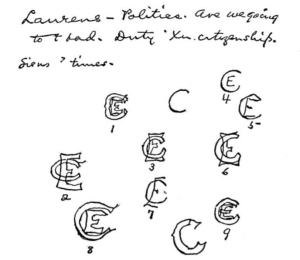 Laurens - Politics. Are we going
to t bad. Duty Xn. citizenship.
Signs ? times.
C
4
1
5
3
6
2
7
8
9